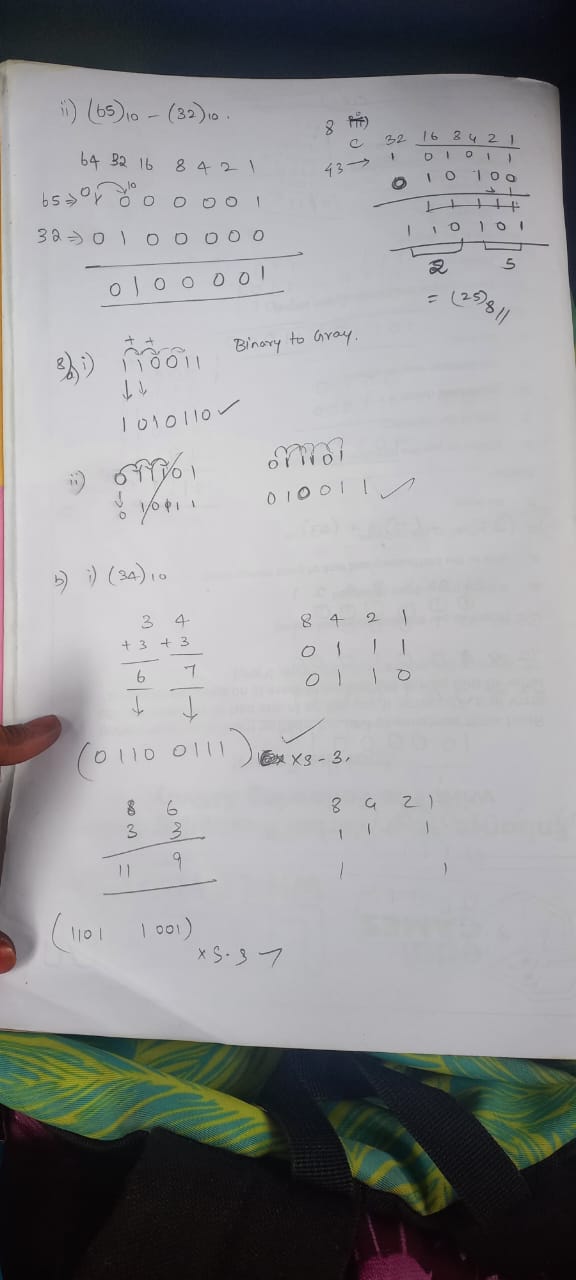 ii) (65)10 - (32)10.
64 32 16 8 4 2 1
0 10
65 => 1 0 0 0 0 0 1
32 => 0 1 0 0 0 0 0
0 1 0 0 0 0 1
8
C 32 16 8 4 2 1
43 → 1 0 1 0 1 1
0 1 0 1 0 0
1
1 1 0 1 0 1
2 5
= (25)8 //
Binary to Gray.
+ +
8) a) i) 1 1 0 0 1 1
↓ ↓
1 0 1 0 1 1 0 ✓
ii) 0 1 1 1 0 1
↓
0 1 0 0 1 1
0 1 1 1 0 1
0 1 0 0 1 1 ✓
b) i) (34)10
3 4
+3 +3
6 7
↓ ↓
8 4 2 1
0 1 1 1
0 1 1 0
(0110 0111) ✓ xs - 3.
8 6
3 3
11 9
8 4 2 1
1 1 1
1 1
(1101 1001) xs-3